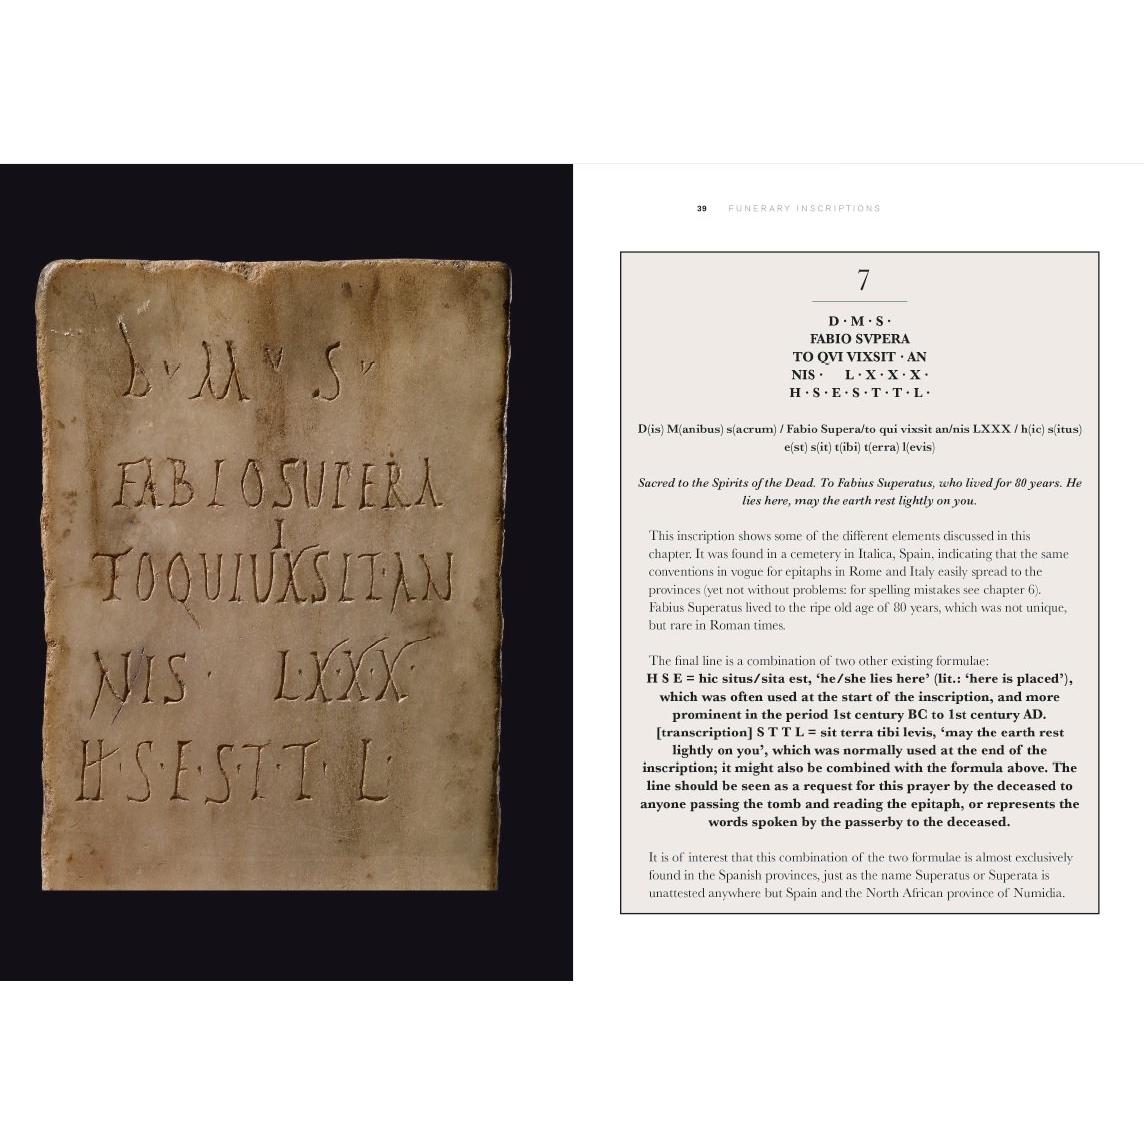 D V M V S V
FABIOSUPERA
I
TOQUIUXSIT·AN
NIS · L·X·X·X·
H·S·E·S·T·T·L·
39 FUNERARY INSCRIPTIONS
7
D · M · S ·
FABIO SVPERA
TO QVI VIXSIT · AN
NIS · L · X · X · X ·
H · S · E · S · T · T · L ·
D(is) M(anibus) s(acrum) / Fabio Supera/to qui vixsit an/nis LXXX / h(ic) s(itus)
e(st) s(it) t(ibi) t(erra) l(evis)
Sacred to the Spirits of the Dead. To Fabius Superatus, who lived for 80 years. He
lies here, may the earth rest lightly on you.
This inscription shows some of the different elements discussed in this
chapter. It was found in a cemetery in Italica, Spain, indicating that the same
conventions in vogue for epitaphs in Rome and Italy easily spread to the
provinces (yet not without problems: for spelling mistakes see chapter 6).
Fabius Superatus lived to the ripe old age of 80 years, which was not unique,
but rare in Roman times.
The final line is a combination of two other existing formulae:
H S E = hic situs/sita est, ‘he/she lies here’ (lit.: ‘here is placed’),
which was often used at the start of the inscription, and more
prominent in the period 1st century BC to 1st century AD.
[transcription] S T T L = sit terra tibi levis, ‘may the earth rest
lightly on you’, which was normally used at the end of the
inscription; it might also be combined with the formula above. The
line should be seen as a request for this prayer by the deceased to
anyone passing the tomb and reading the epitaph, or represents the
words spoken by the passerby to the deceased.
It is of interest that this combination of the two formulae is almost exclusively
found in the Spanish provinces, just as the name Superatus or Superata is
unattested anywhere but Spain and the North African province of Numidia.